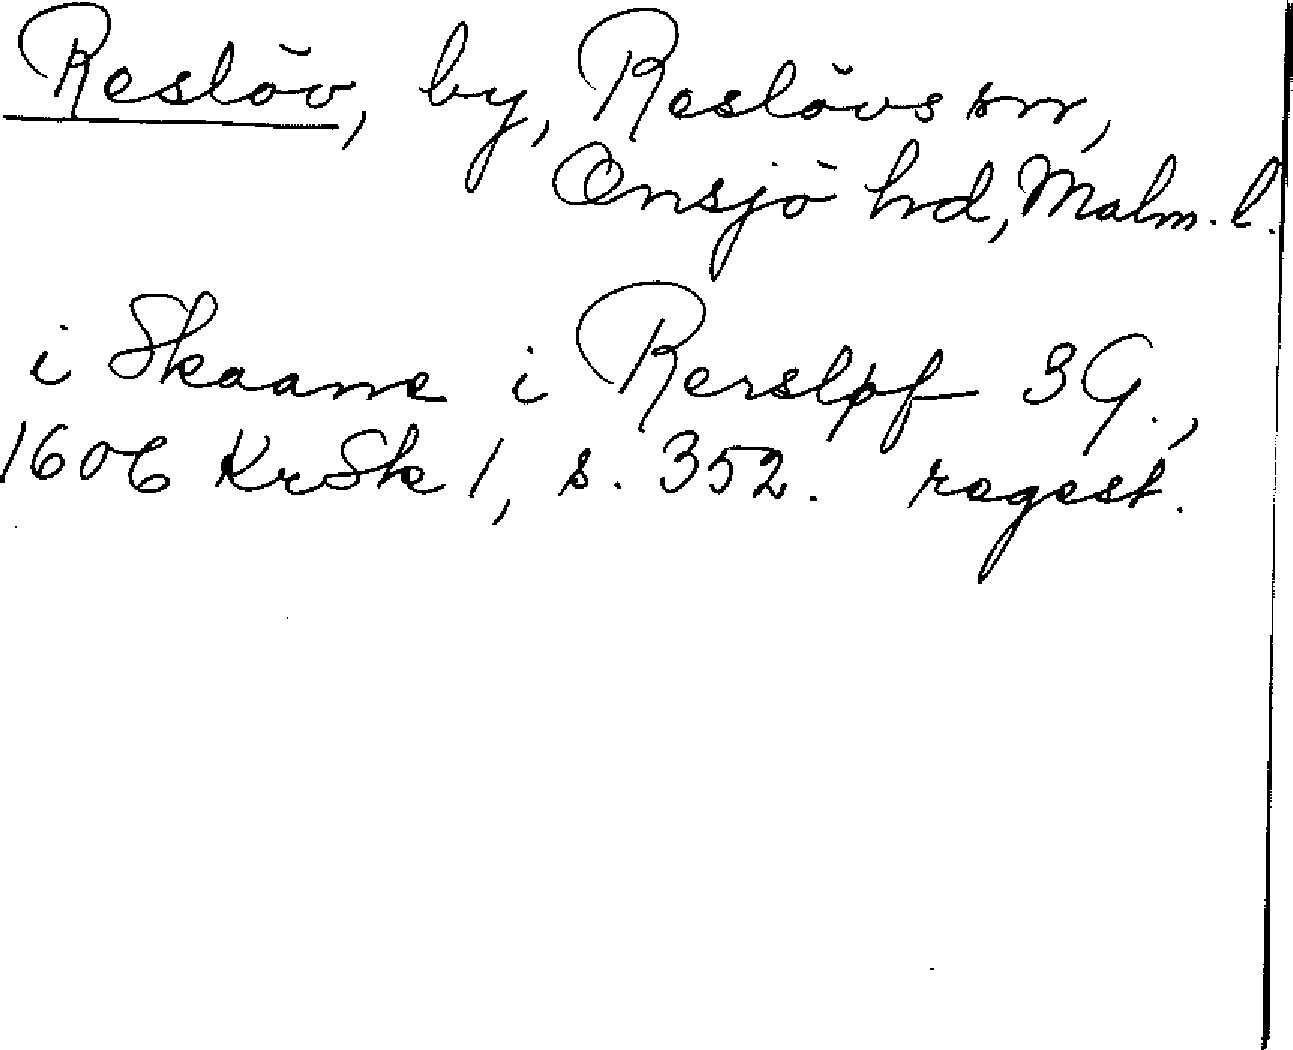 Reslöv, by, Reslövs sn,
Onsjö hd, Malm. l.
i Skaane i Rersløf 3 G.,
1606 KrSk 1, s. 352. regest.